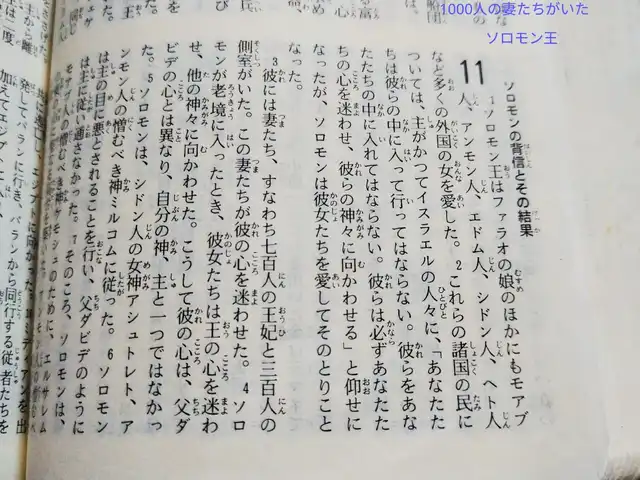 1000人の妻たちがいた
ソロモン王
ソロモンの背信とその結果
11 1ソロモン王はファラオの娘のほかにもモアブ
人、アンモン人、エドム人、シドン人、ヘト人
など多くの外国の女を愛した。2これらの諸国の民に
ついては、主がかつてイスラエルの人々に、「あなたた
ちは彼らの中に入って行ってはならない。彼らをあな
たたちの中に入れてはならない。彼らは必ずあなたた
ちの心を迷わせ、彼らの神々に向かわせる」と仰せに
なったが、ソロモンは彼女たちを愛してそのとりこと
なった。
3彼には妻たち、すなわち七百人の王妃と三百人の
側室がいた。この妻たちが彼の心を迷わせた。4ソロ
モンが老境に入ったとき、彼女たちは王の心を迷わ
せ、他の神々に向かわせた。こうして彼の心は、父ダ
ビデの心とは異なり、自分の神、主と一つではなかっ
た。5ソロモンは、シドン人の女神アシュトレト、ア
ンモン人の憎むべき神ミルコムに従った。6ソロモン
は主の目に悪とされることを行い、父ダビデのように
は主に従い通さなかった。7そのころ、ソロモンは、
モアブ人の憎むべき神ケモシュのために、エルサレム
発してパランに行き、パランから同行する従者たちを
加えてエジプト